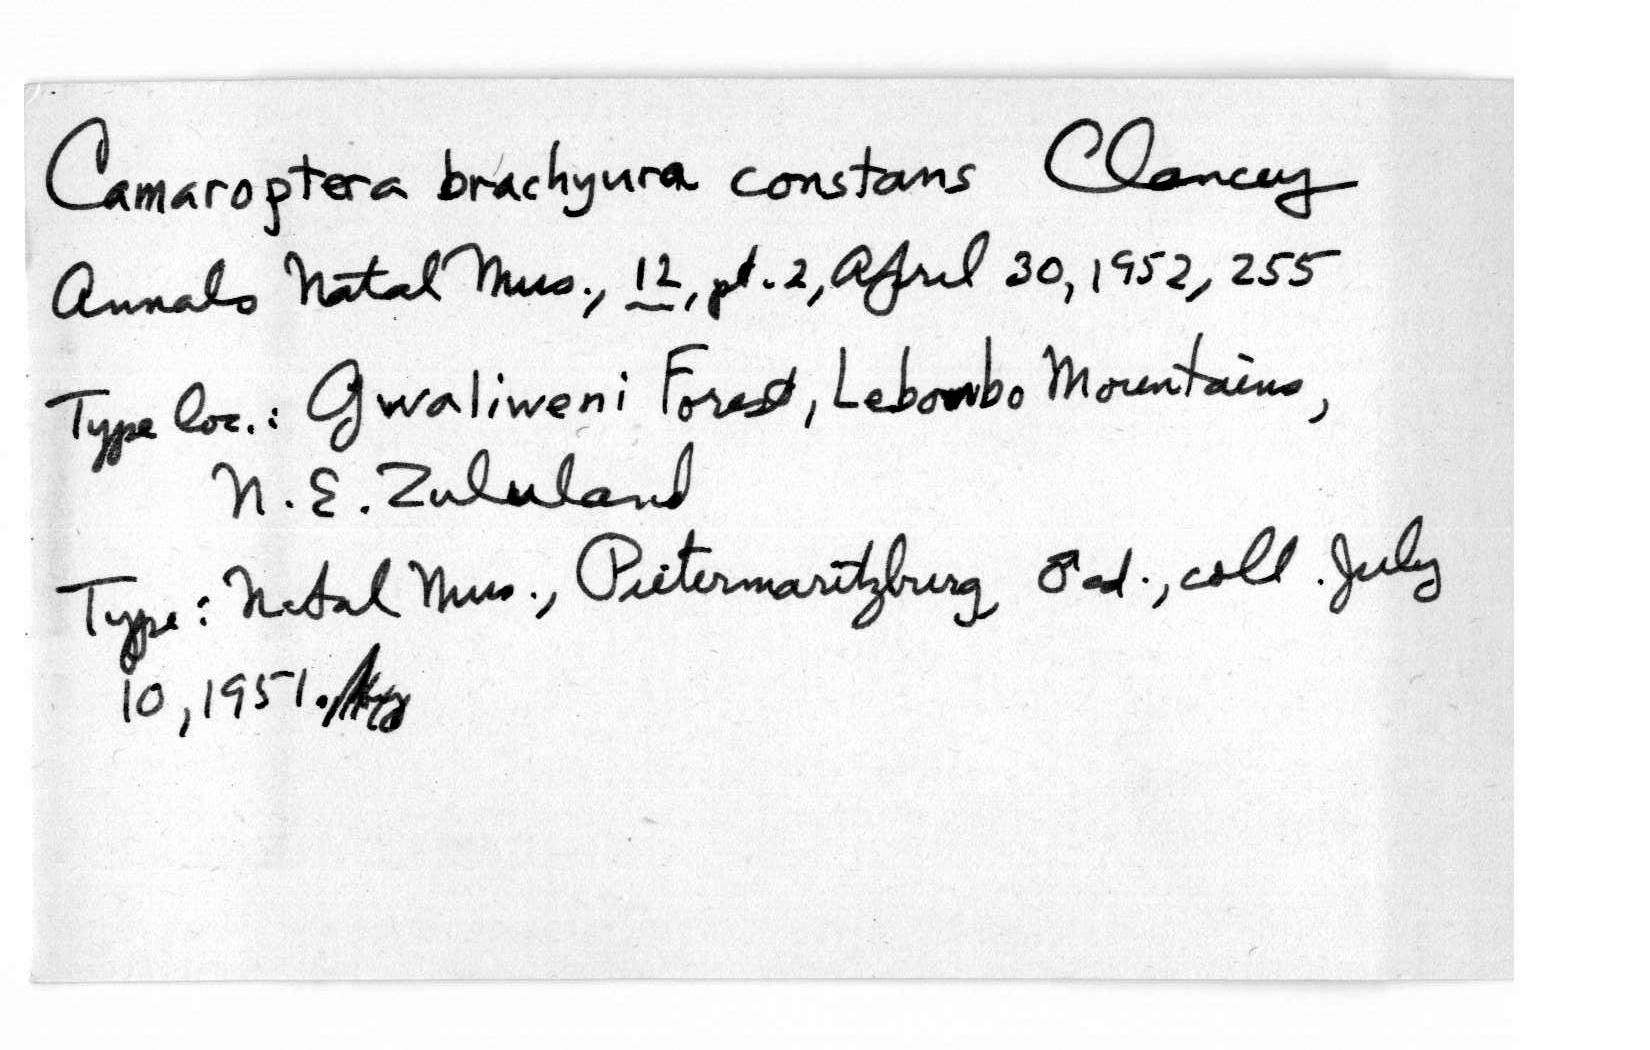 Camaroptera brachyura constans Clancey
Annals Natal Mus., 12, pt. 2, April 30, 1952, 255
Type loc.: Gwaliweni Forest, Lebombo Mountains,
N.E. Zululand
Type: Natal Mus., Pietermaritzburg ♂ ad., coll. July
10, 1951.